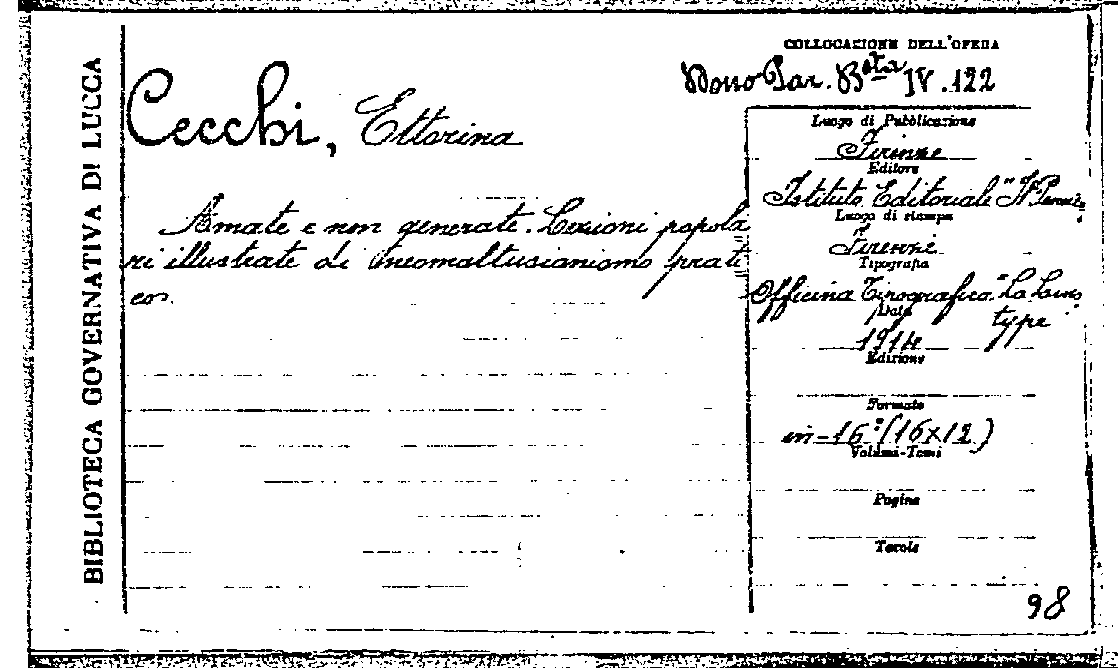 BIBLIOTECA GOVERNATIVA DI LUCCA
COLLOCAZIONE DELL'OPERA
Dono Par. B.ta IV. 122
Cecchi, Ettorina
Amate e non generate. Lezioni popola
ri illustrate di neomaltusianismo prati
co.
Luogo di Pubblicazione
Firenze
Editore
Istituto Editoriale "Il
Luogo di stampa
Firenze
Tipografia
Officina Tipografica "La Lino
type
Data
1914
Edizione
Formato
in-16º (16x12)
Volumi-Tomi
Pagine
Tavole
98